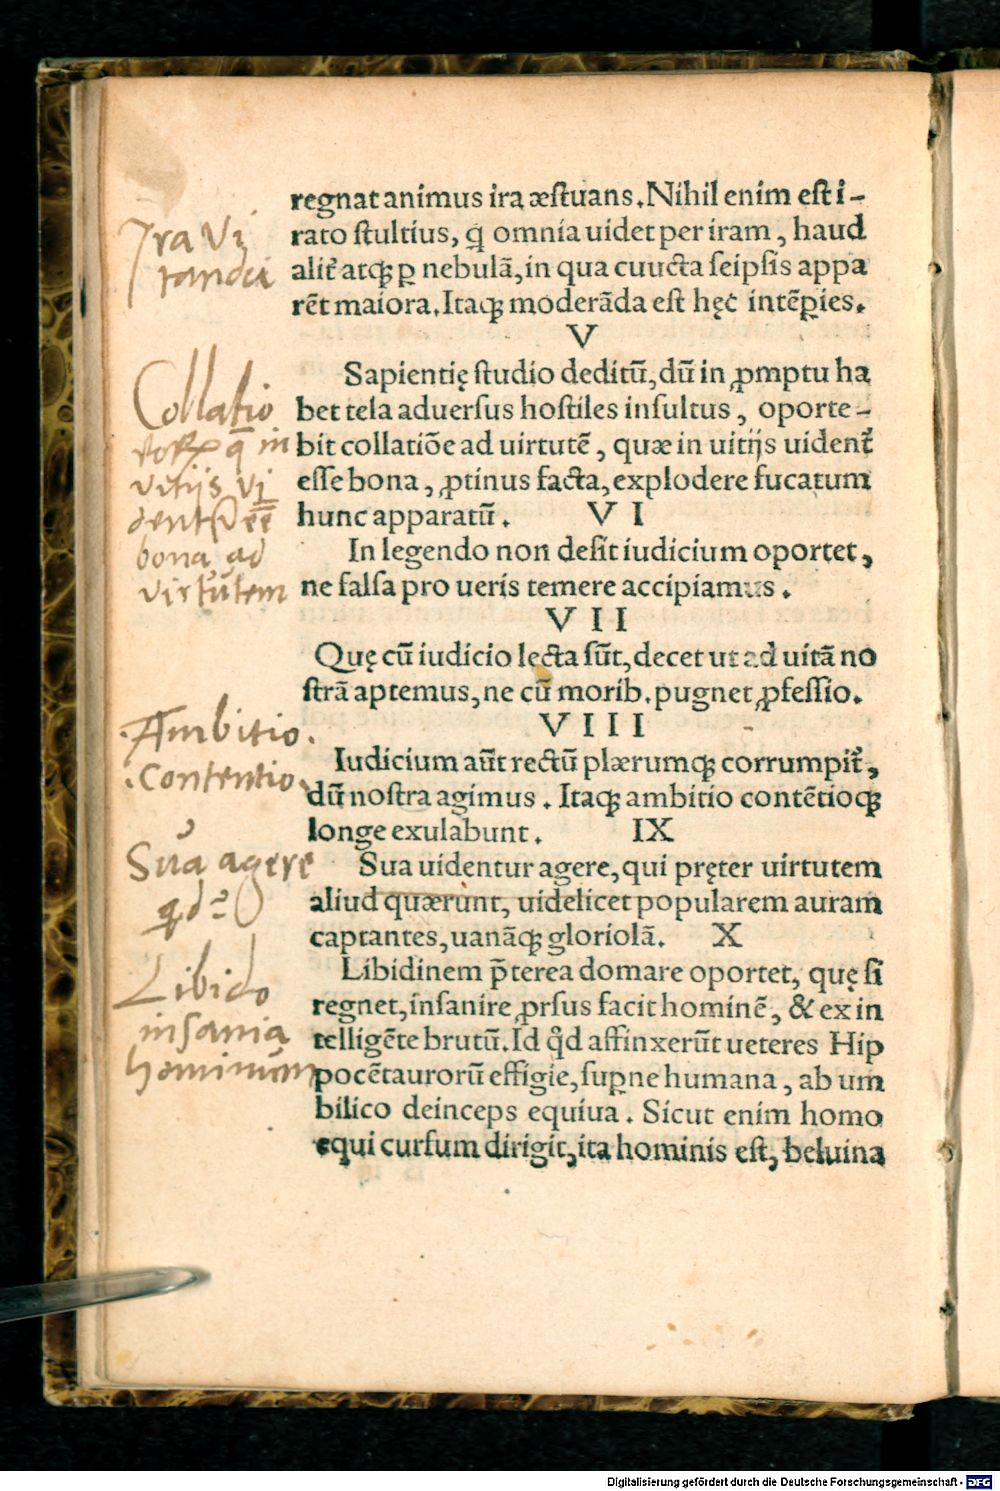 regnat animus ira æstuans. Nihil enim est i-
rato stultius, q̃ omnia uidet per iram, haud
alit᷑ atq; ꝑ nebulã, in qua cuucta seipsis appa
rẽt maiora. Itaq; moderãda est hęc intẽꝑies.
V
Sapientię studio deditũ, dũ in ꝓmptu ha
bet tela aduersus hostiles insultus, oporte-
bit collatiõe ad uirtutẽ, quæ in uitijs uident᷑
esse bona, ꝓtinus facta, explodere fucatum
hunc apparatũ. VI
In legendo non desit iudicium oportet,
ne falsa pro ueris temere accipiamus.
VII
Quę cũ iudicio lecta sũt, decet ut ad uitã no
strã aptemus, ne cũ morib. pugnet ꝓfessio.
VIII
Iudicium aũt rectũ plærumq; corrumpit᷑,
dũ nostra agimus. Itaq; ambitio contẽtioq;
longe exulabunt. IX
Sua uidentur agere, qui pręter uirtutem
aliud quærunt, uidelicet popularem auram
captantes, uanãq; gloriolã. X
Libidinem p̃terea domare oportet, quę si
regnet, insanire ꝓrsus facit hominẽ, & ex in
telligẽte brutũ. Id q̃d affinxerũt ueteres Hip
pocẽtaurorũ effigie, suꝑne humana, ab um
bilico deinceps equiua. Sicut enim homo
equi cursum dirigit, ita hominis est, beluina
Ira vi
tanda
Collatio
eorꝝ q̄ in
vitijs vi
dent᷑ eē
bona ad
virtutem
Ambitio.
.contentio.
Sua agere
qd
Libido
insania
hominum
Digitalisierung gefördert durch die Deutsche Forschungsgemeinschaft - DFG